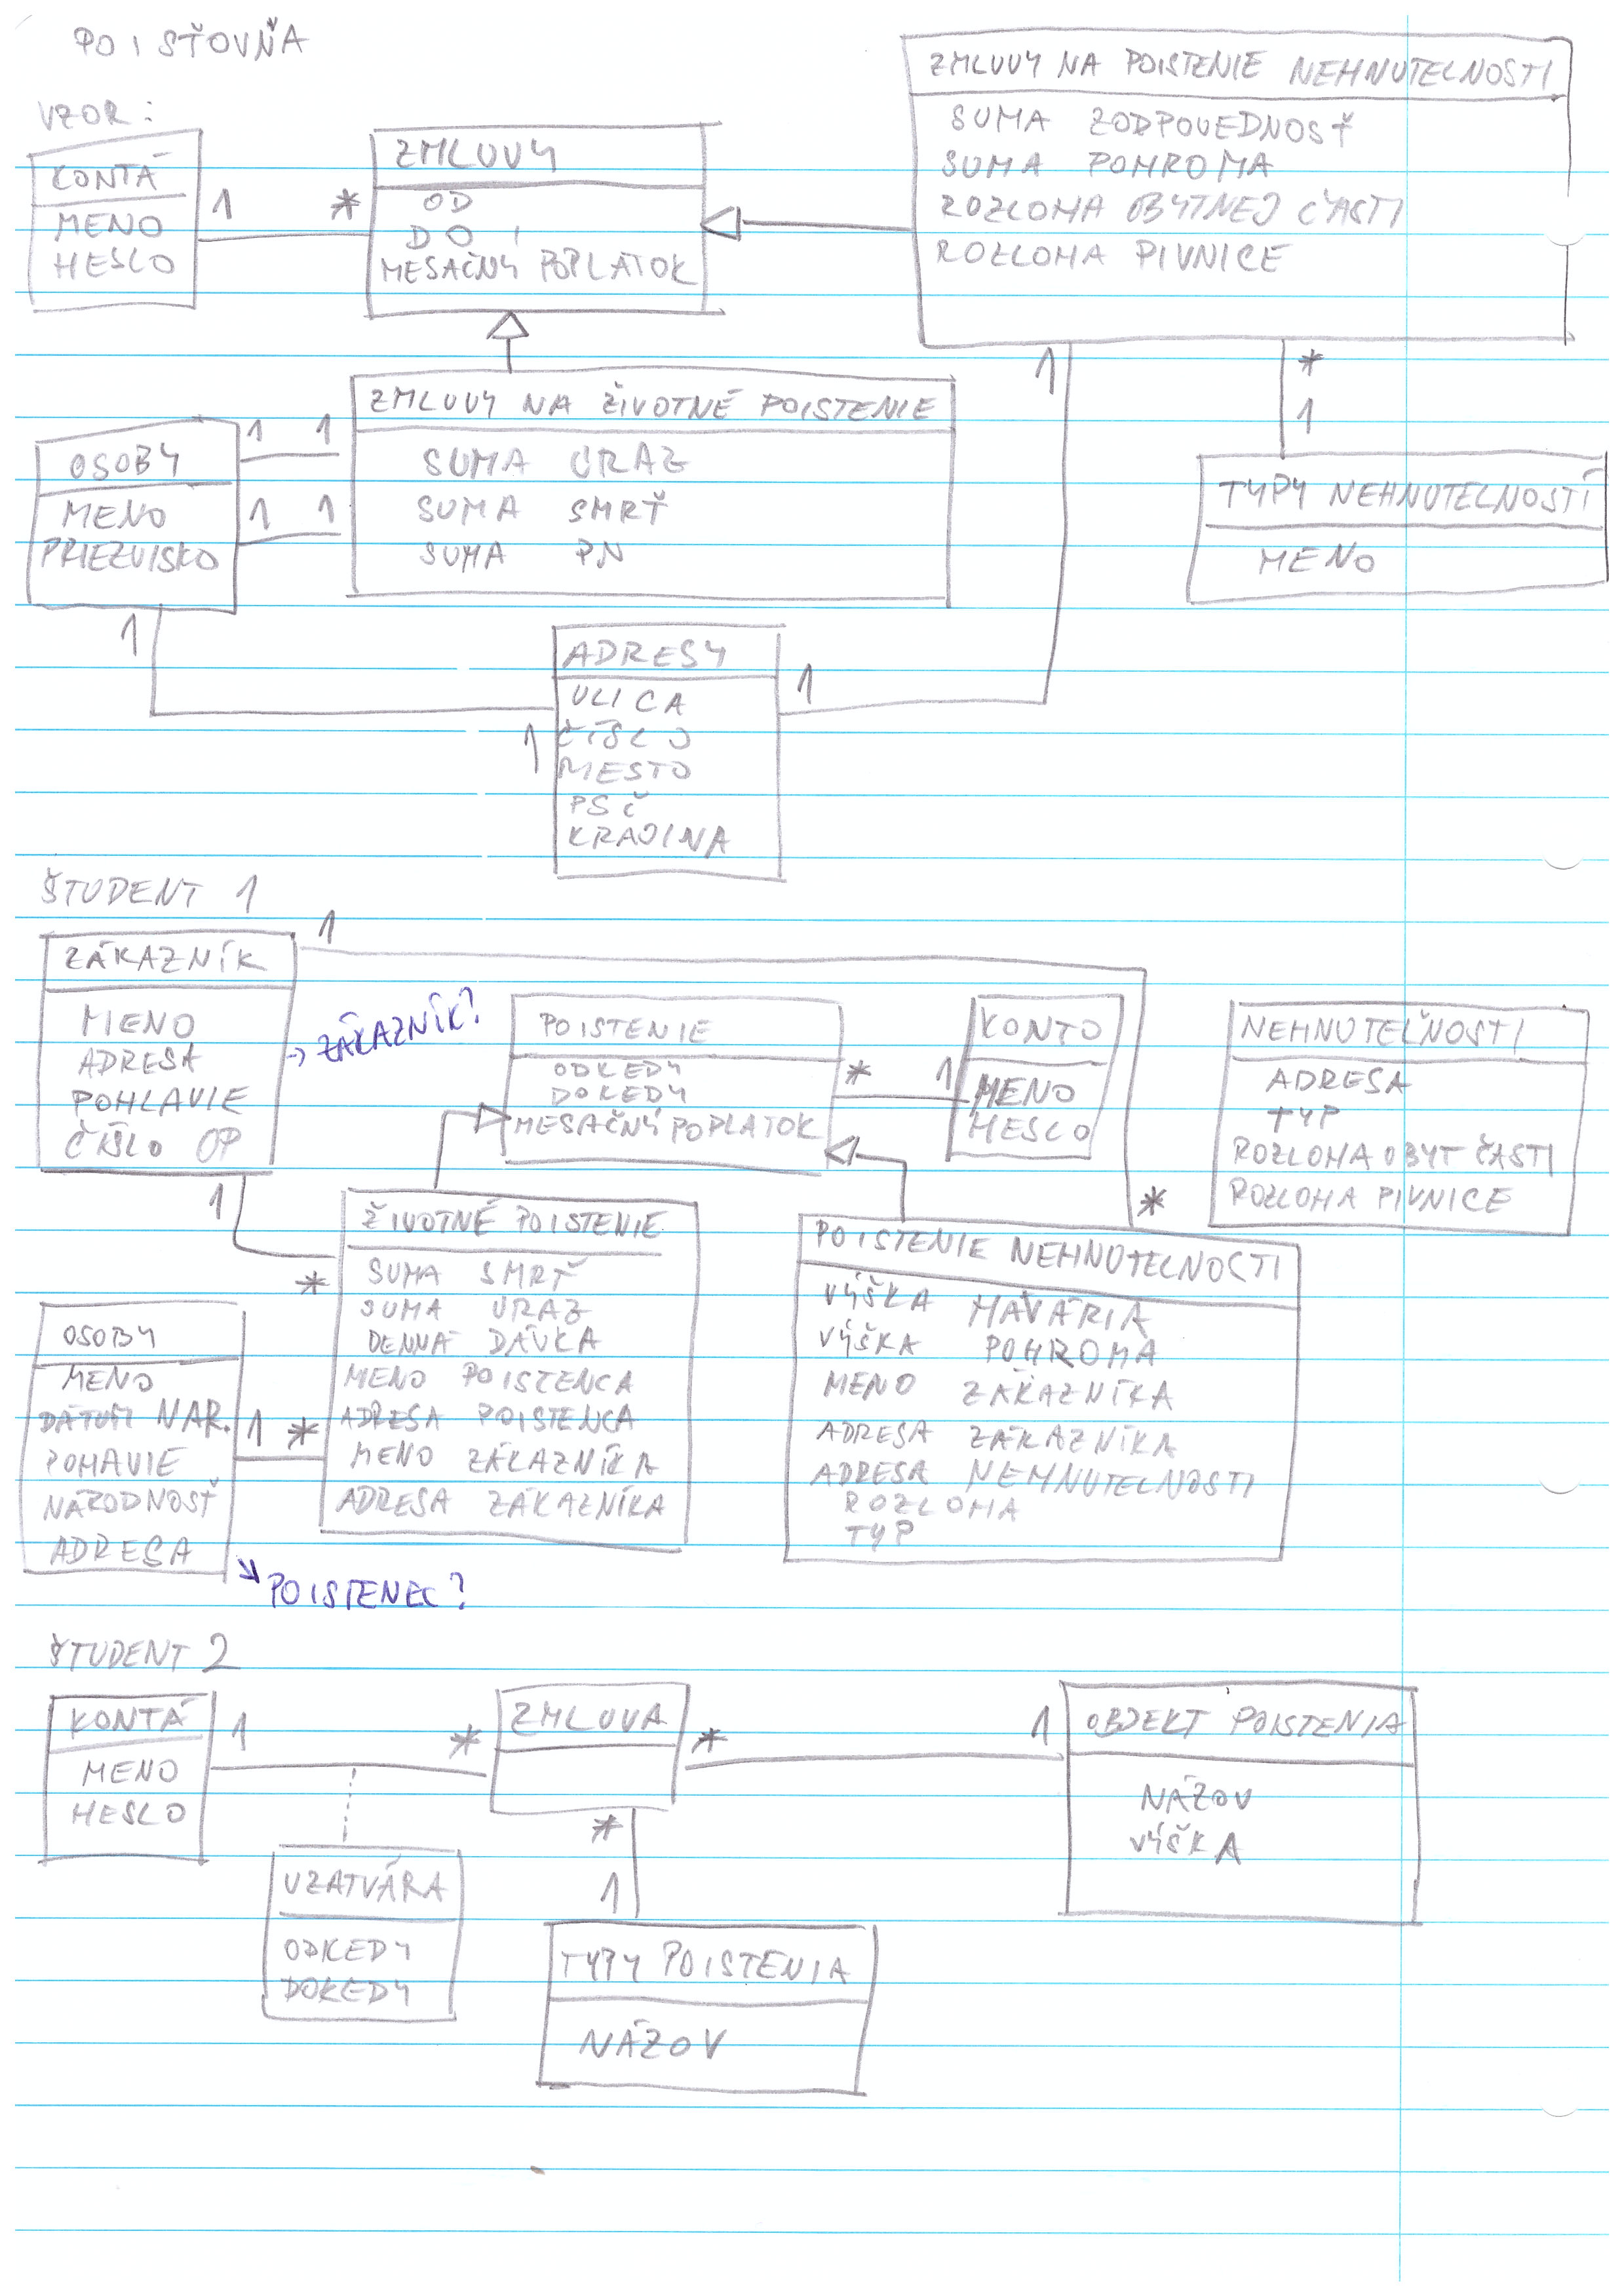 POISŤOVŇA
VZOR:
KONTÁ
MENO
HESLO
1 *
ZMLUVY
OD
DO
MESAČNÝ POPLATOK
ZMLUVY NA POISTENIE NEHNUTELNOSTI
SUMA ZODPOVEDNOSŤ
SUMA POHROMA
ROZLOHA OBYTNEJ ČASTI
ROZLOHA PIVNICE
1 *
1
ZMLUVY NA ŽIVOTNÉ POISTENIE
SUMA ÚRAZ
SUMA SMRŤ
SUMA PN
OSOBY
MENO
PRIEZVISKO
1 1
1 1
TYPY NEHNUTELNOSTÍ
MENO
1
1
1
ADRESY
ULICA
ČÍSLO
MESTO
PSČ
KRAJINA
ŠTUDENT 1
1
ZÁKAZNÍK
MENO
ADRESA
POHLAVIE
ČÍSLO OP
→ ZÁKAZNÍK?
POISTENIE
ODKEDY
DOKEDY
MESAČNÝ POPLATOK
* 1
KONTO
MENO
HESLO
NEHNUTEĽNOSTI
ADRESA
TYP
ROZLOHA OBYT ČASTI
ROZLOHA PIVNICE
1
*
*
ŽIVOTNÉ POISTENIE
SUMA SMRŤ
SUMA ÚRAZ
DENNÁ DÁVKA
MENO POISTENCA
ADRESA POISTENCA
MENO ZÁKAZNÍKA
ADRESA ZÁKAZNÍKA
POISTENIE NEHNUTELNOSTI
VÝŠKA HAVÁRIA
VÝŠKA POHROMA
MENO ZÁKAZNÍKA
ADRESA ZÁKAZNÍKA
ADRESA NEHNUTELNOSTI
ROZLOHA
TYP
OSOBY
MENO
DÁTUM NAR.
POHAVIE
NÁRODNOSŤ
ADRESA
1 *
→ POISTENEC?
ŠTUDENT 2
KONTÁ
MENO
HESLO
1 *
ZMLUVA
* 1
OBJEKT POISTENIA
NÁZOV
VÝŠKA
*
1
UZATVÁRA
ODKEDY
DOKEDY
TYPY POISTENIA
NÁZOV